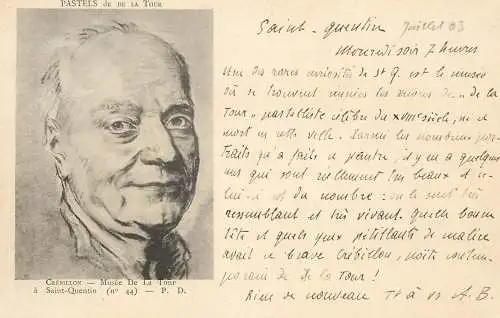 PASTELS de DE LA TOUR
CRÉBILLON — MUSÉE DE LA TOUR
à SAINT-QUENTIN (nº 44) — P. D.
Saint-Quentin Juillet 03
Mercredi soir 7 heures
Une des rares curiosités de St Q. est le musée
où se trouvent réunies les œuvres de "de la
Tour" pastelliste célèbre du XVIIIe siècle, né et
mort en cette ville. Parmi les nombreux por-
traits qu'a faits ce peintre, il y en a quelques
uns qui sont réellement très beaux et ce-
lui-ci est du nombre : on le sent très
ressemblant et très vivant. Quelle bonne
tête et quels yeux pétillants de malice
avait ce brave Crébillon, poète contem-
porain de De la Tour !
Rien de nouveau Tt à vs A. B.